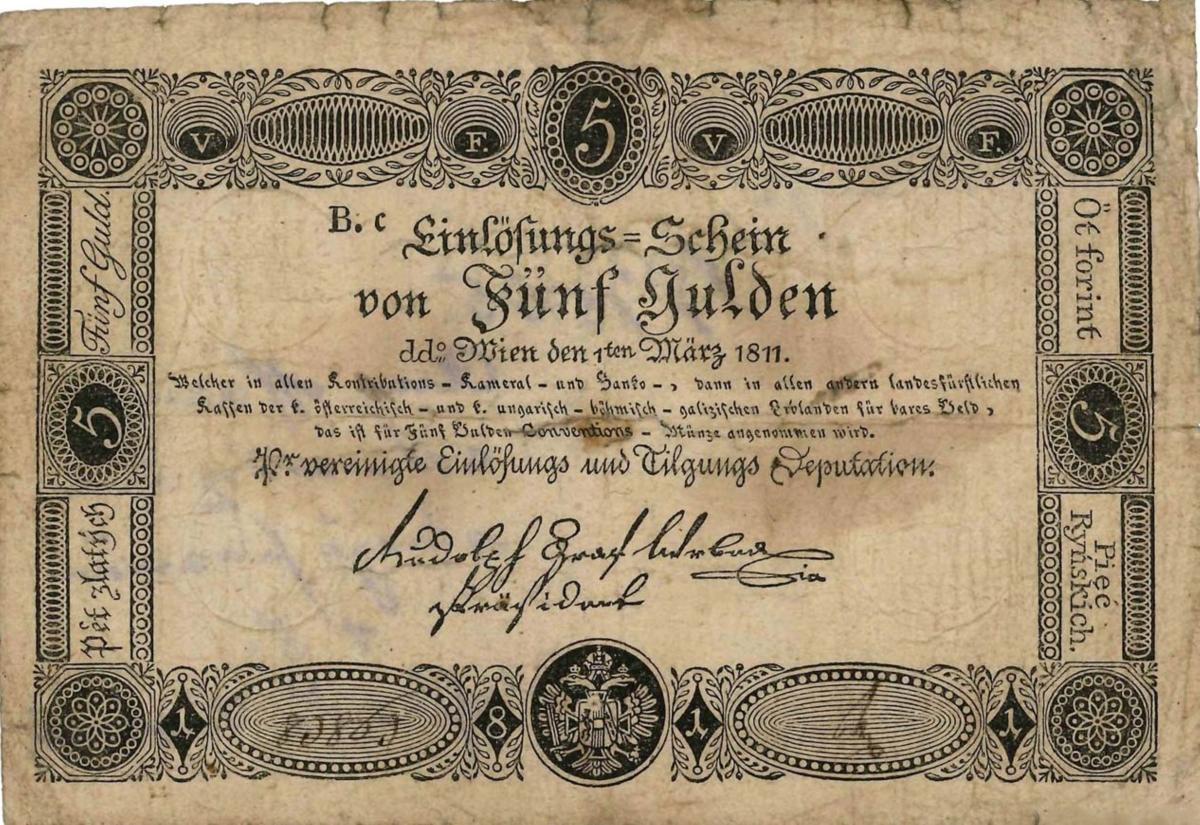 V F. 5 V F.
Fünf Guld.
Öt forint
B. c
Einlösungs=Schein
von Fünf Gulden
ddo. Wien den 1ten März 1811.
Welcher in allen Kontributions - Kameral - und Banko -, dann in allen andern landesfürstlichen
Kassen der k. österreichisch - und k. ungarisch - böhmisch - galizischen Erblanden für bares Geld,
das ist für Fünf Gulden Conventions - Münze angenommen wird.
5
5
Pr. vereinigte Einlösungs und Tilgungs Deputation.
Pět zlatých
Pięć
Ryńskich.
Rudolph Graf
Präsident
1 8 1 1